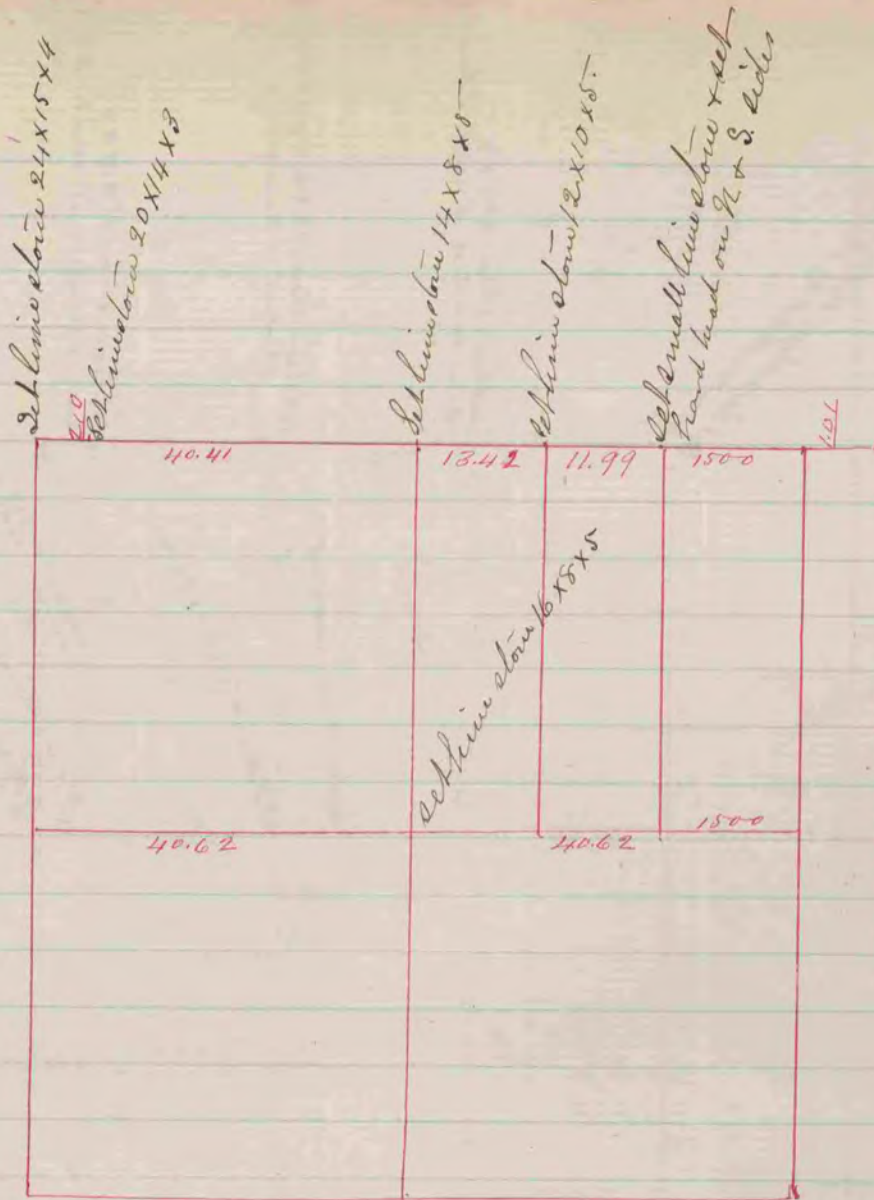 Set lime stone 24x15x4
2.10
Set lime stone 20x14x3
Set lime stone 14x8x8
set lime stone 12x10x5
set small lime stone & set
hard head on N & S. sides
1.01
40.41
13.42
11.99
1500
set lime stone 16x8x5
40.62
40.62
1500